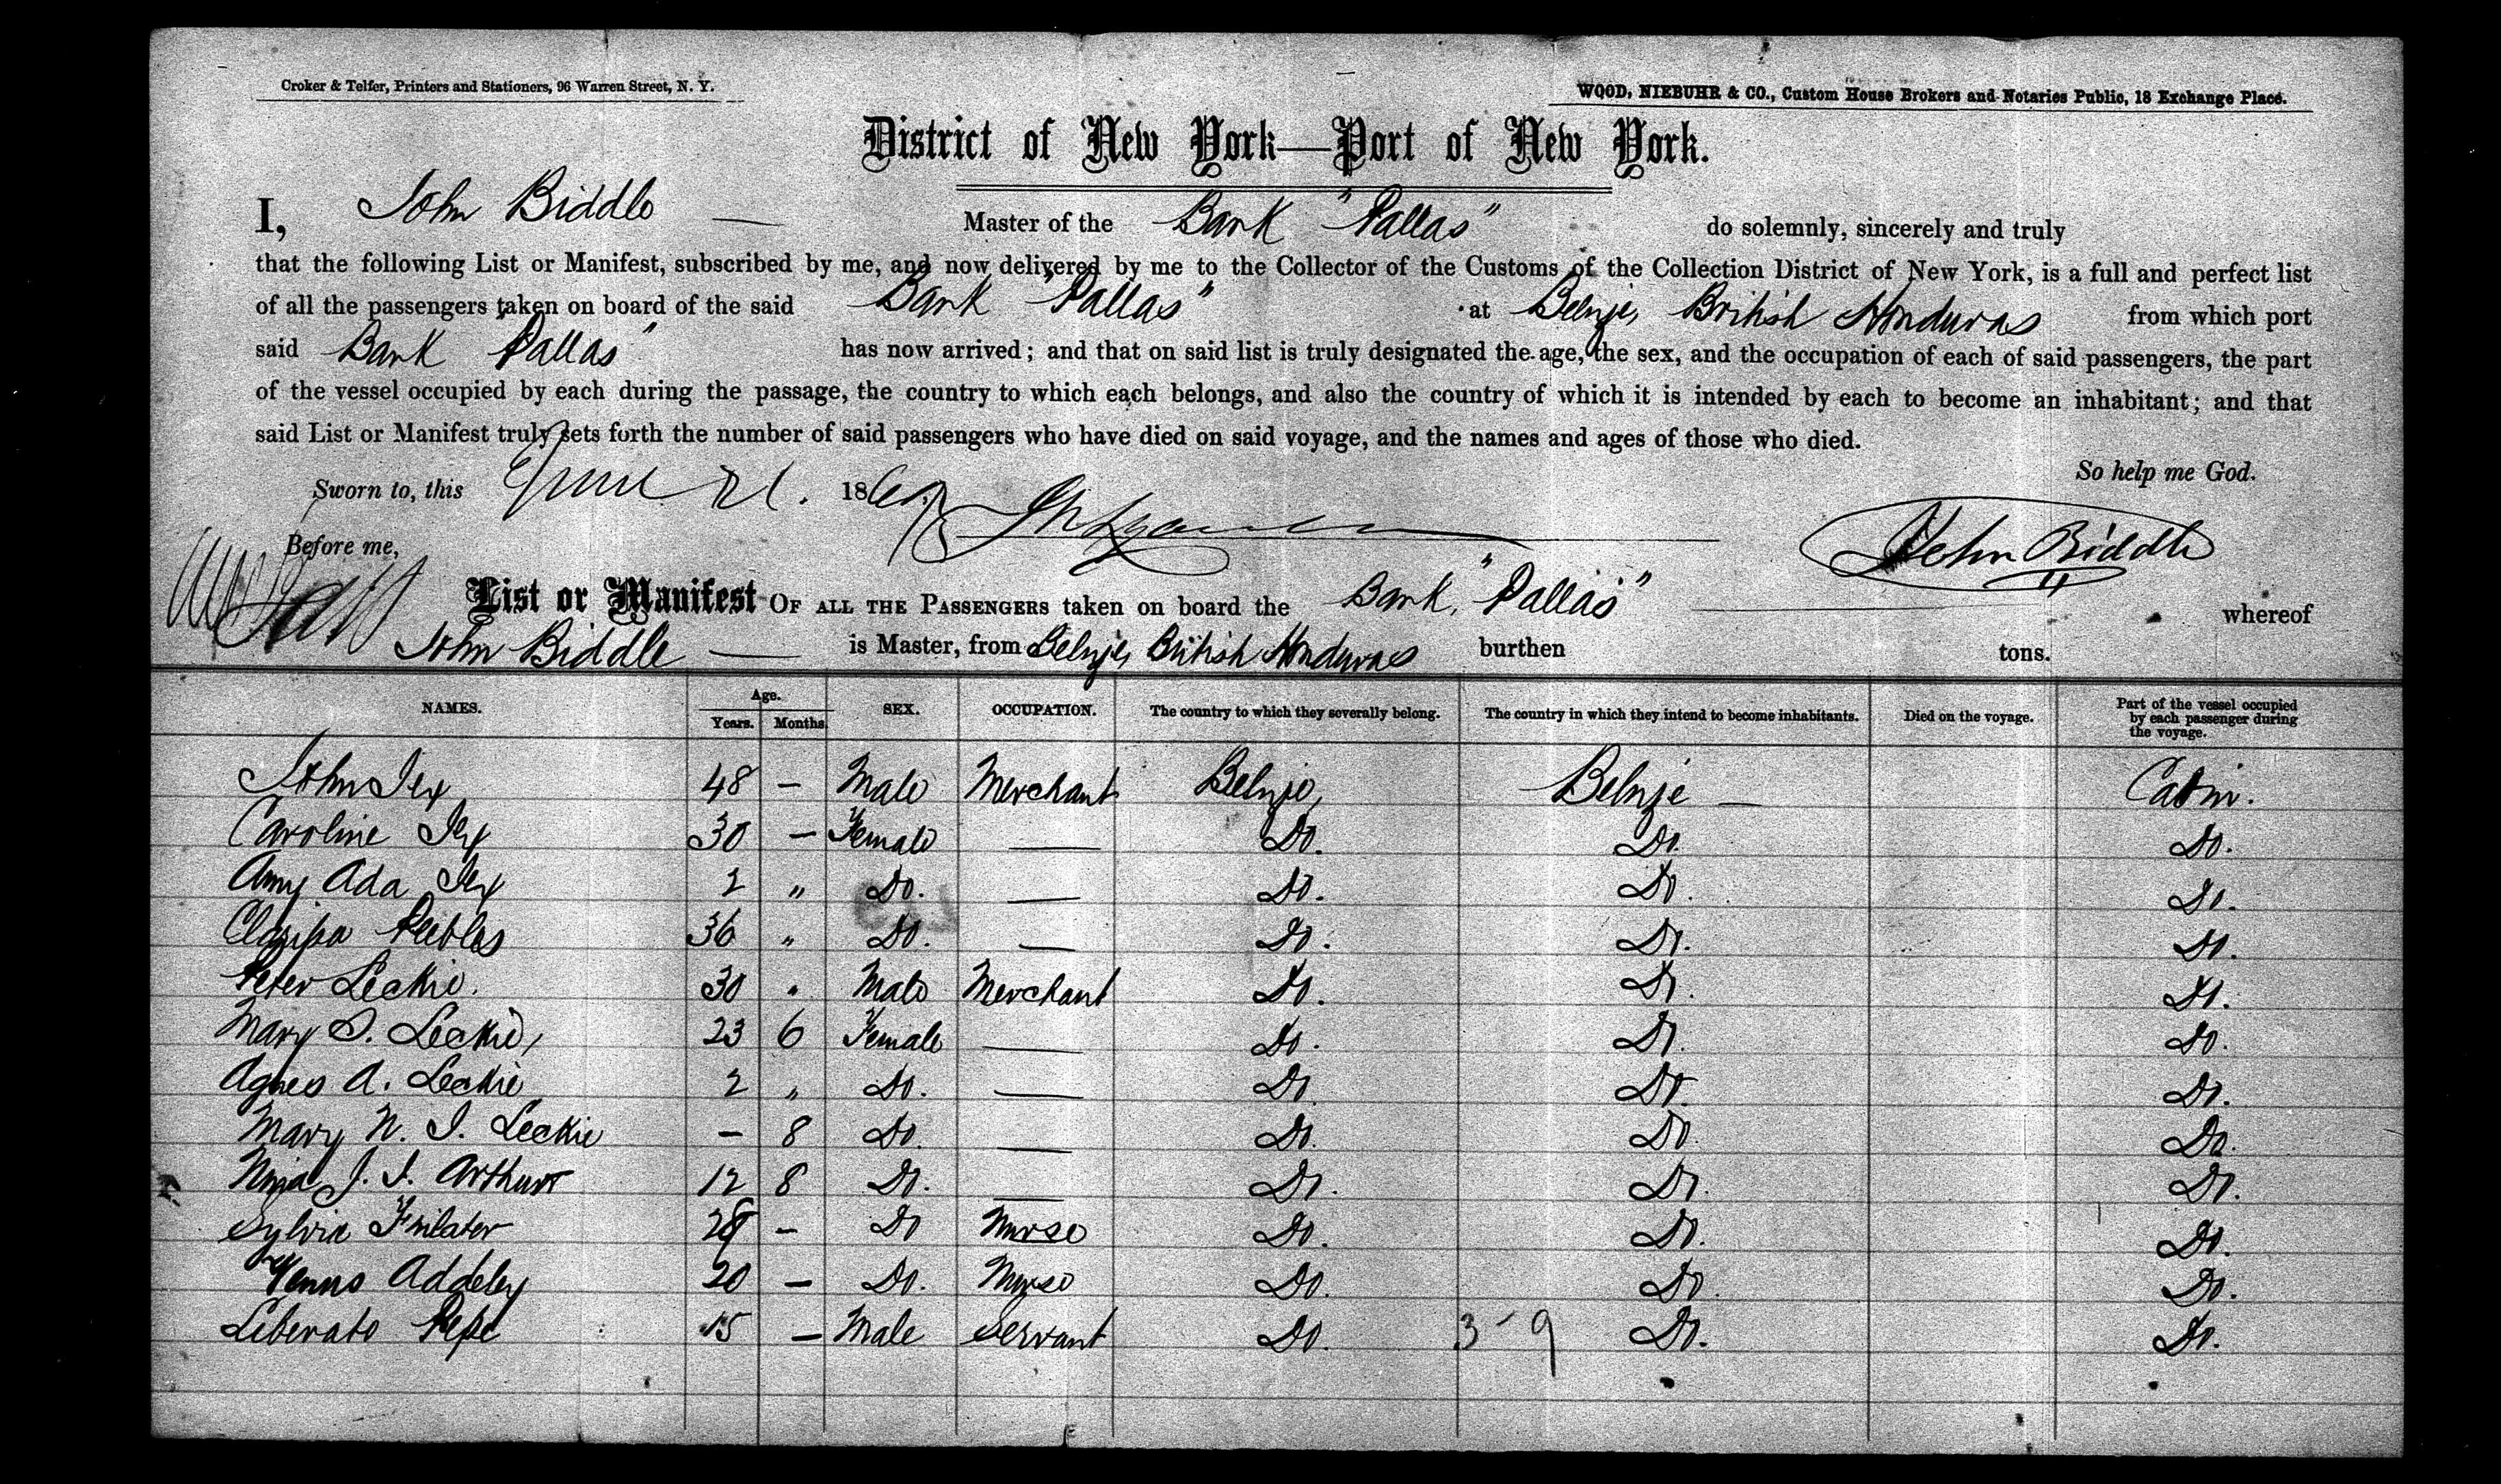 Croker & Telfer, Printers and Stationers, 96 Warren Street, N. Y.
WOOD, NIEBUHR & CO., Custom House Brokers and Notaries Public, 18 Exchange Place.
District of New York—Port of New York.
I, John Biddle — Master of the Bark "Pallas" do solemnly, sincerely and truly
that the following List or Manifest, subscribed by me, and now delivered by me to the Collector of the Customs of the Collection District of New York, is a full and perfect list
of all the passengers taken on board of the said Bark "Pallas" at Belize, British Honduras from which port
said Bark "Pallas" has now arrived; and that on said list is truly designated the age, the sex, and the occupation of each of said passengers, the part
of the vessel occupied by each during the passage, the country to which each belongs, and also the country of which it is intended by each to become an inhabitant; and that
said List or Manifest truly sets forth the number of said passengers who have died on said voyage, and the names and ages of those who died.
So help me God.
Sworn to, this June 21. 186
John Biddle
Before me,
List or Manifest OF ALL THE PASSENGERS taken on board the Bark, "Pallas" — whereof
John Biddle — is Master, from Belize, British Honduras burthen tons.
NAMES. Age. Years. Months. SEX. OCCUPATION. The country to which they severally belong. The country in which they intend to become inhabitants. Died on the voyage. Part of the vessel occupied by each passenger during the voyage.
John Jex 48 — Male Merchant Belize, Belize — Cabin.
Caroline Jex 30 — Female — Do. Do. Do.
Amy Ada Jex 2 " Do. — Do. Do. Do.
Clarissa Peebles 36 " Do. — Do. Do. Do.
Peter Leckie. 30 " Male Merchant Do. Do. Do.
Mary S. Leckie, 23 6 Female — Do. Do. Do.
Agnes A. Leckie 2 " Do. — Do. Do. Do.
Mary N. I. Leckie — 8 Do. — Do. Do. Do.
J. I. Arthurs 12 8 Do. — Do. Do. Do.
Sylvia — Do Nurse Do. Do. Do.
Venus Addeley 20 — Do. Nurse Do. Do. Do.
Liberato Pepe 15 — Male Servant Do. 3 - 9 Do. Do.